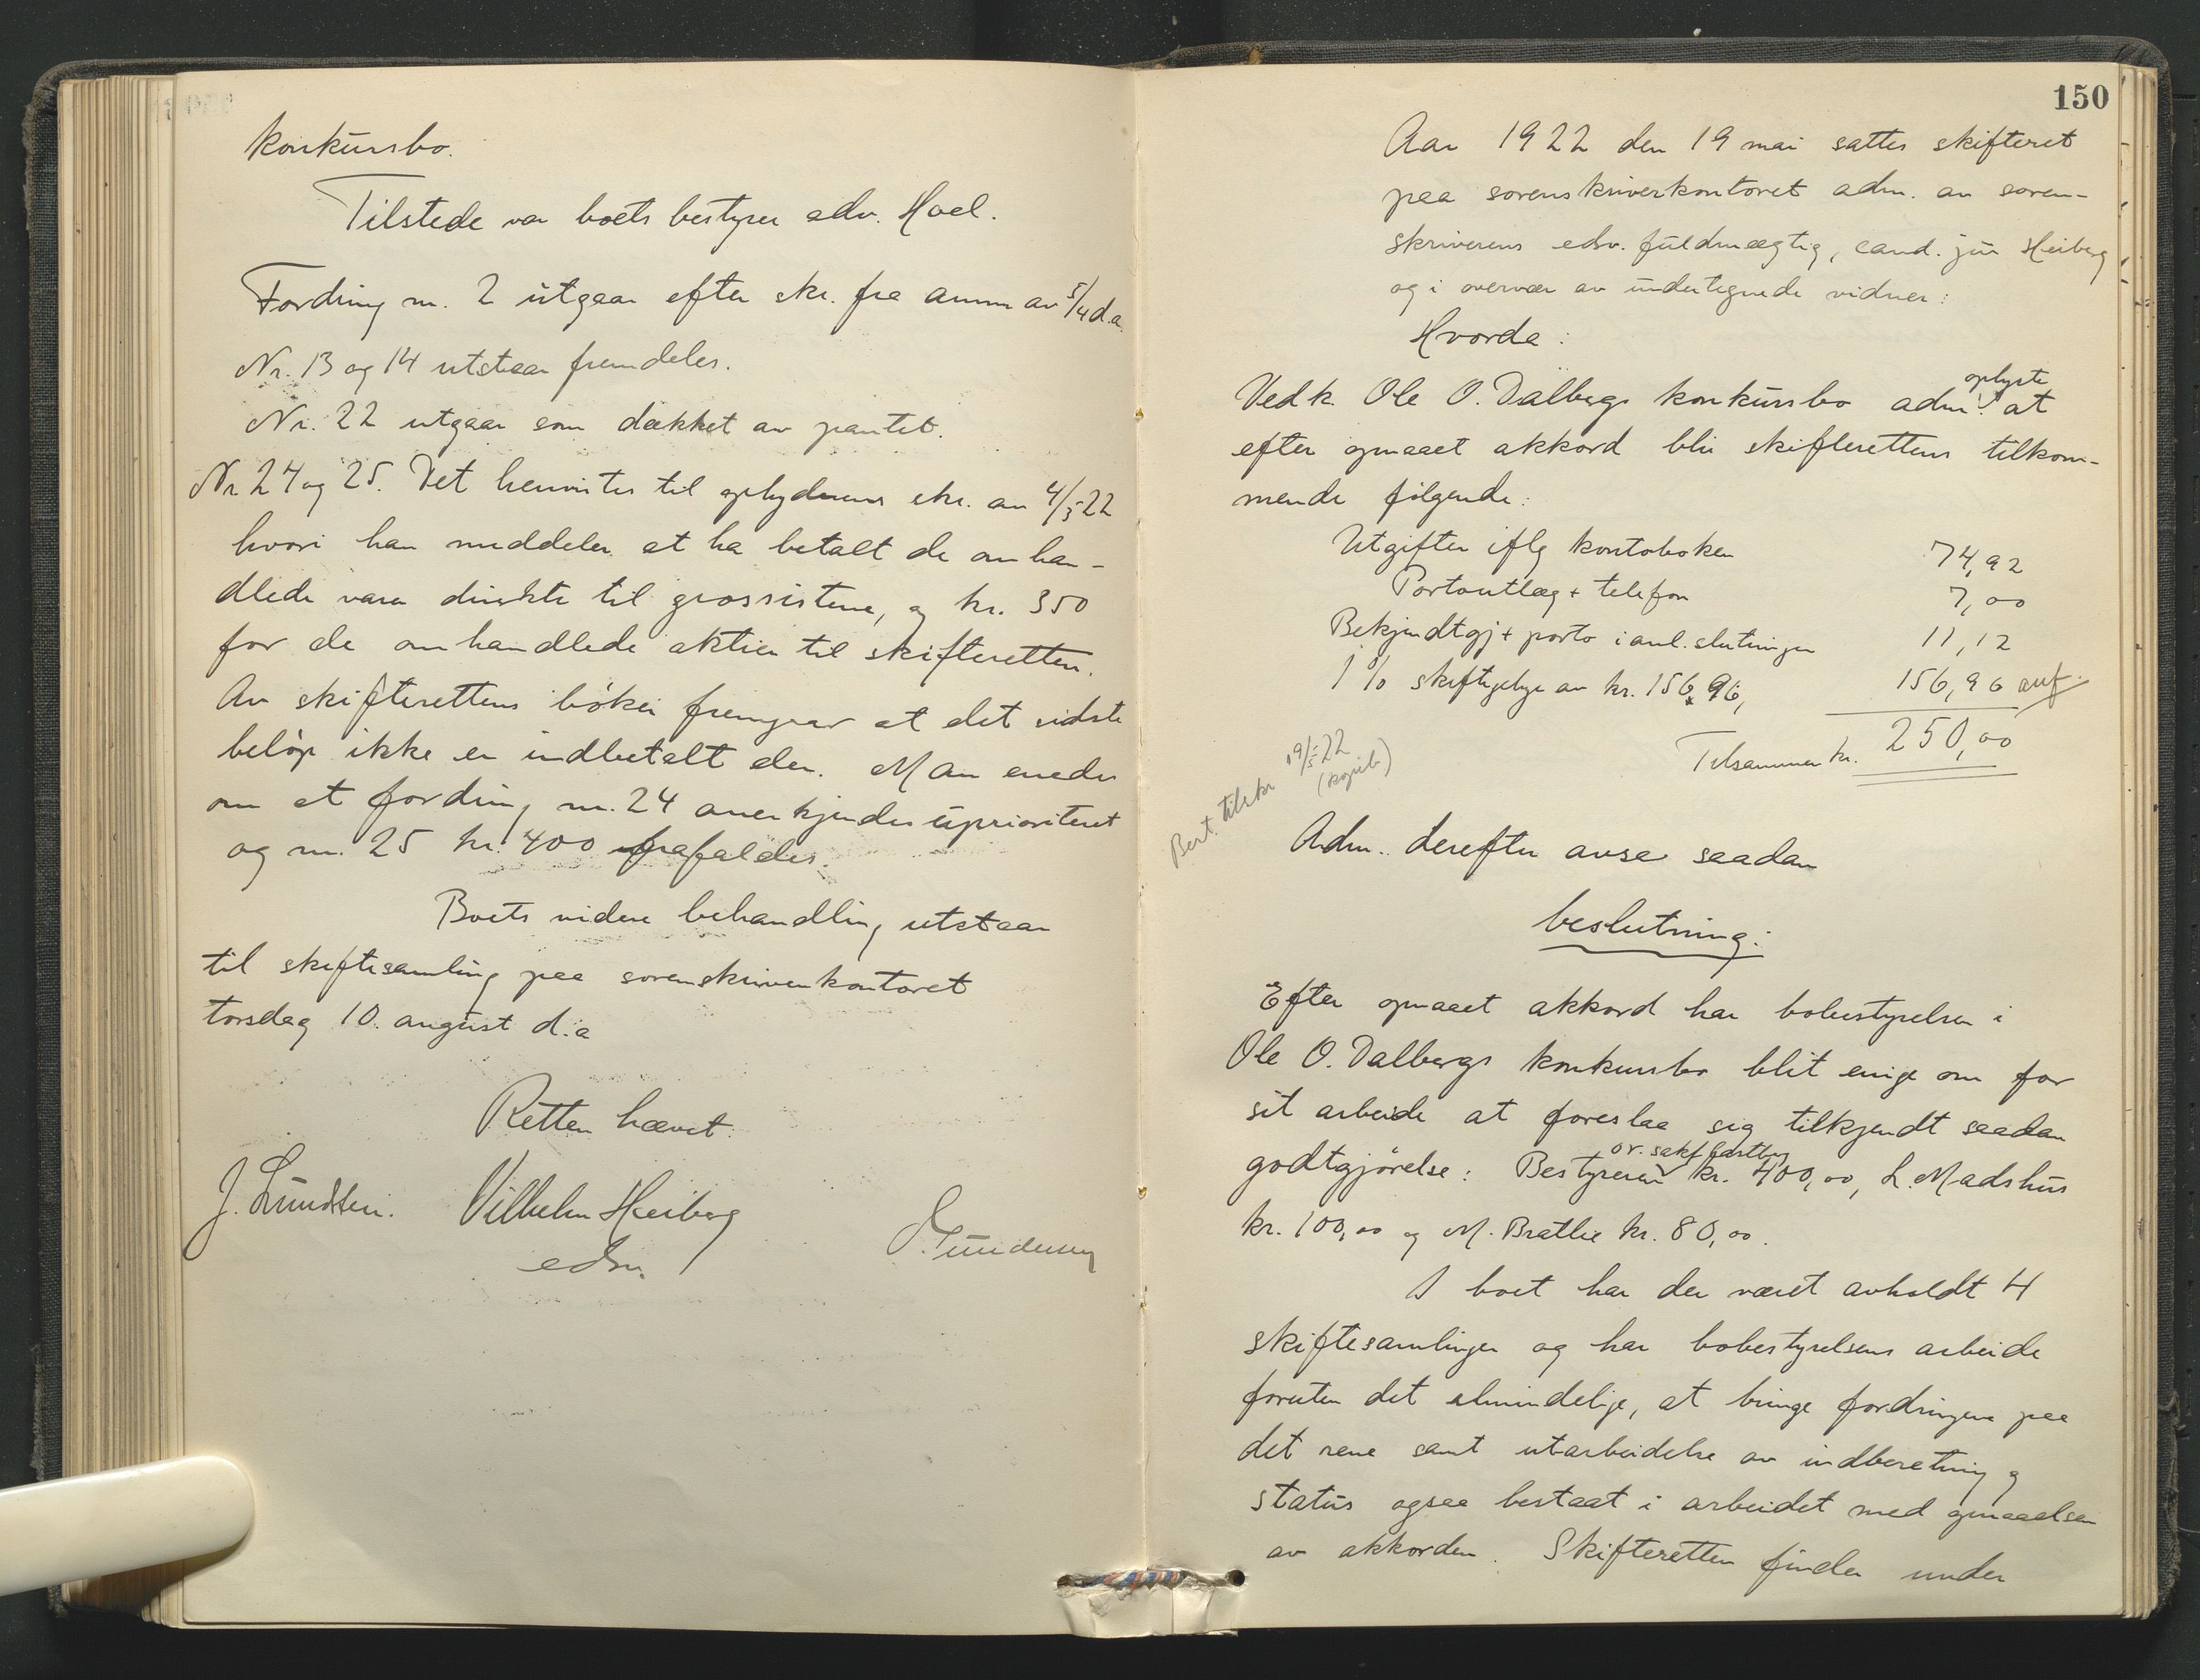 konkursbo.
Tilstede var boets bestyrer adv. Hoel.
Fordring nr. 2 utgaar efter skr. fra anm av 5/4 d.a.
Nr. 13 og 14 utstaar fremdeles.
Nr. 22 utgaar som dækket av pantet.
Nr 24 og 25. Det henvistes til skr. av 4/5-22
hvori han meddeler at ha betalt de omhan-
dlede varer direkte til grossisterne, og kr. 350
for de omhandlede aktier til skifteretten.
Av skifterettens bøker fremgaar at det sidste
beløp ikke er indbetalt der. Man enedes
om at fordring nr. 24 anerkjendes uprioritert
og nr. 25 kr. 400 frafaldes.
Boets videre behandling utstaar
til skiftesamling paa sorenskriverkontoret
torsdag 10. august d.a
Retten hævet.
J. Lundsten. Vilhelm Heiberg
edsv.
Gundersen
150
Aar 1922 den 19 mai sattes skifteret
paa sorenskriverkontoret adm. av soren-
skriverens edsv. fuldmægtig, cand. jur Heiberg
og i overvær av undertegnede vidner:
Hvorda:
oplyste
Vedk. Ole O. Dalbergs konkursbo adm. at
efter opnaaet akkord blir skifterettens tilkom-
mende følgende:
Utgifter iflg kontoboken 74,92
Portoutlæg + telefon 7,00
Bekjendtgj + porto i anl. slutningen 11,12
1 % skiftegebyr av kr. 156,96, 156,96
Tilsammen kr. 250,00
Ber. tilskr 19/5-22
(kopib.)
Adm. derefter avsa saadan
beslutning:
Efter opnaaet akkord har bobestyrelsen i
Ole O. Dalbergs konkursbo blit enige om for
sit arbeide at foreslaa sig tilkjendt saadan
or. sakf
godtgjørelse: Bestyreren kr. 400,00, L. Madshus
kr. 100,00 og M. Bratlie kr. 80,00.
I boet har der været avholdt 4
skiftesamlinger og har bobestyrelsens arbeide
foruten det almindelige, at bringe fordringene paa
det rene samt utarbeidelse av indberetning og
status ogsaa bestaat i arbeidet med opnaaelsen
av akkorden. Skifteretten finder under